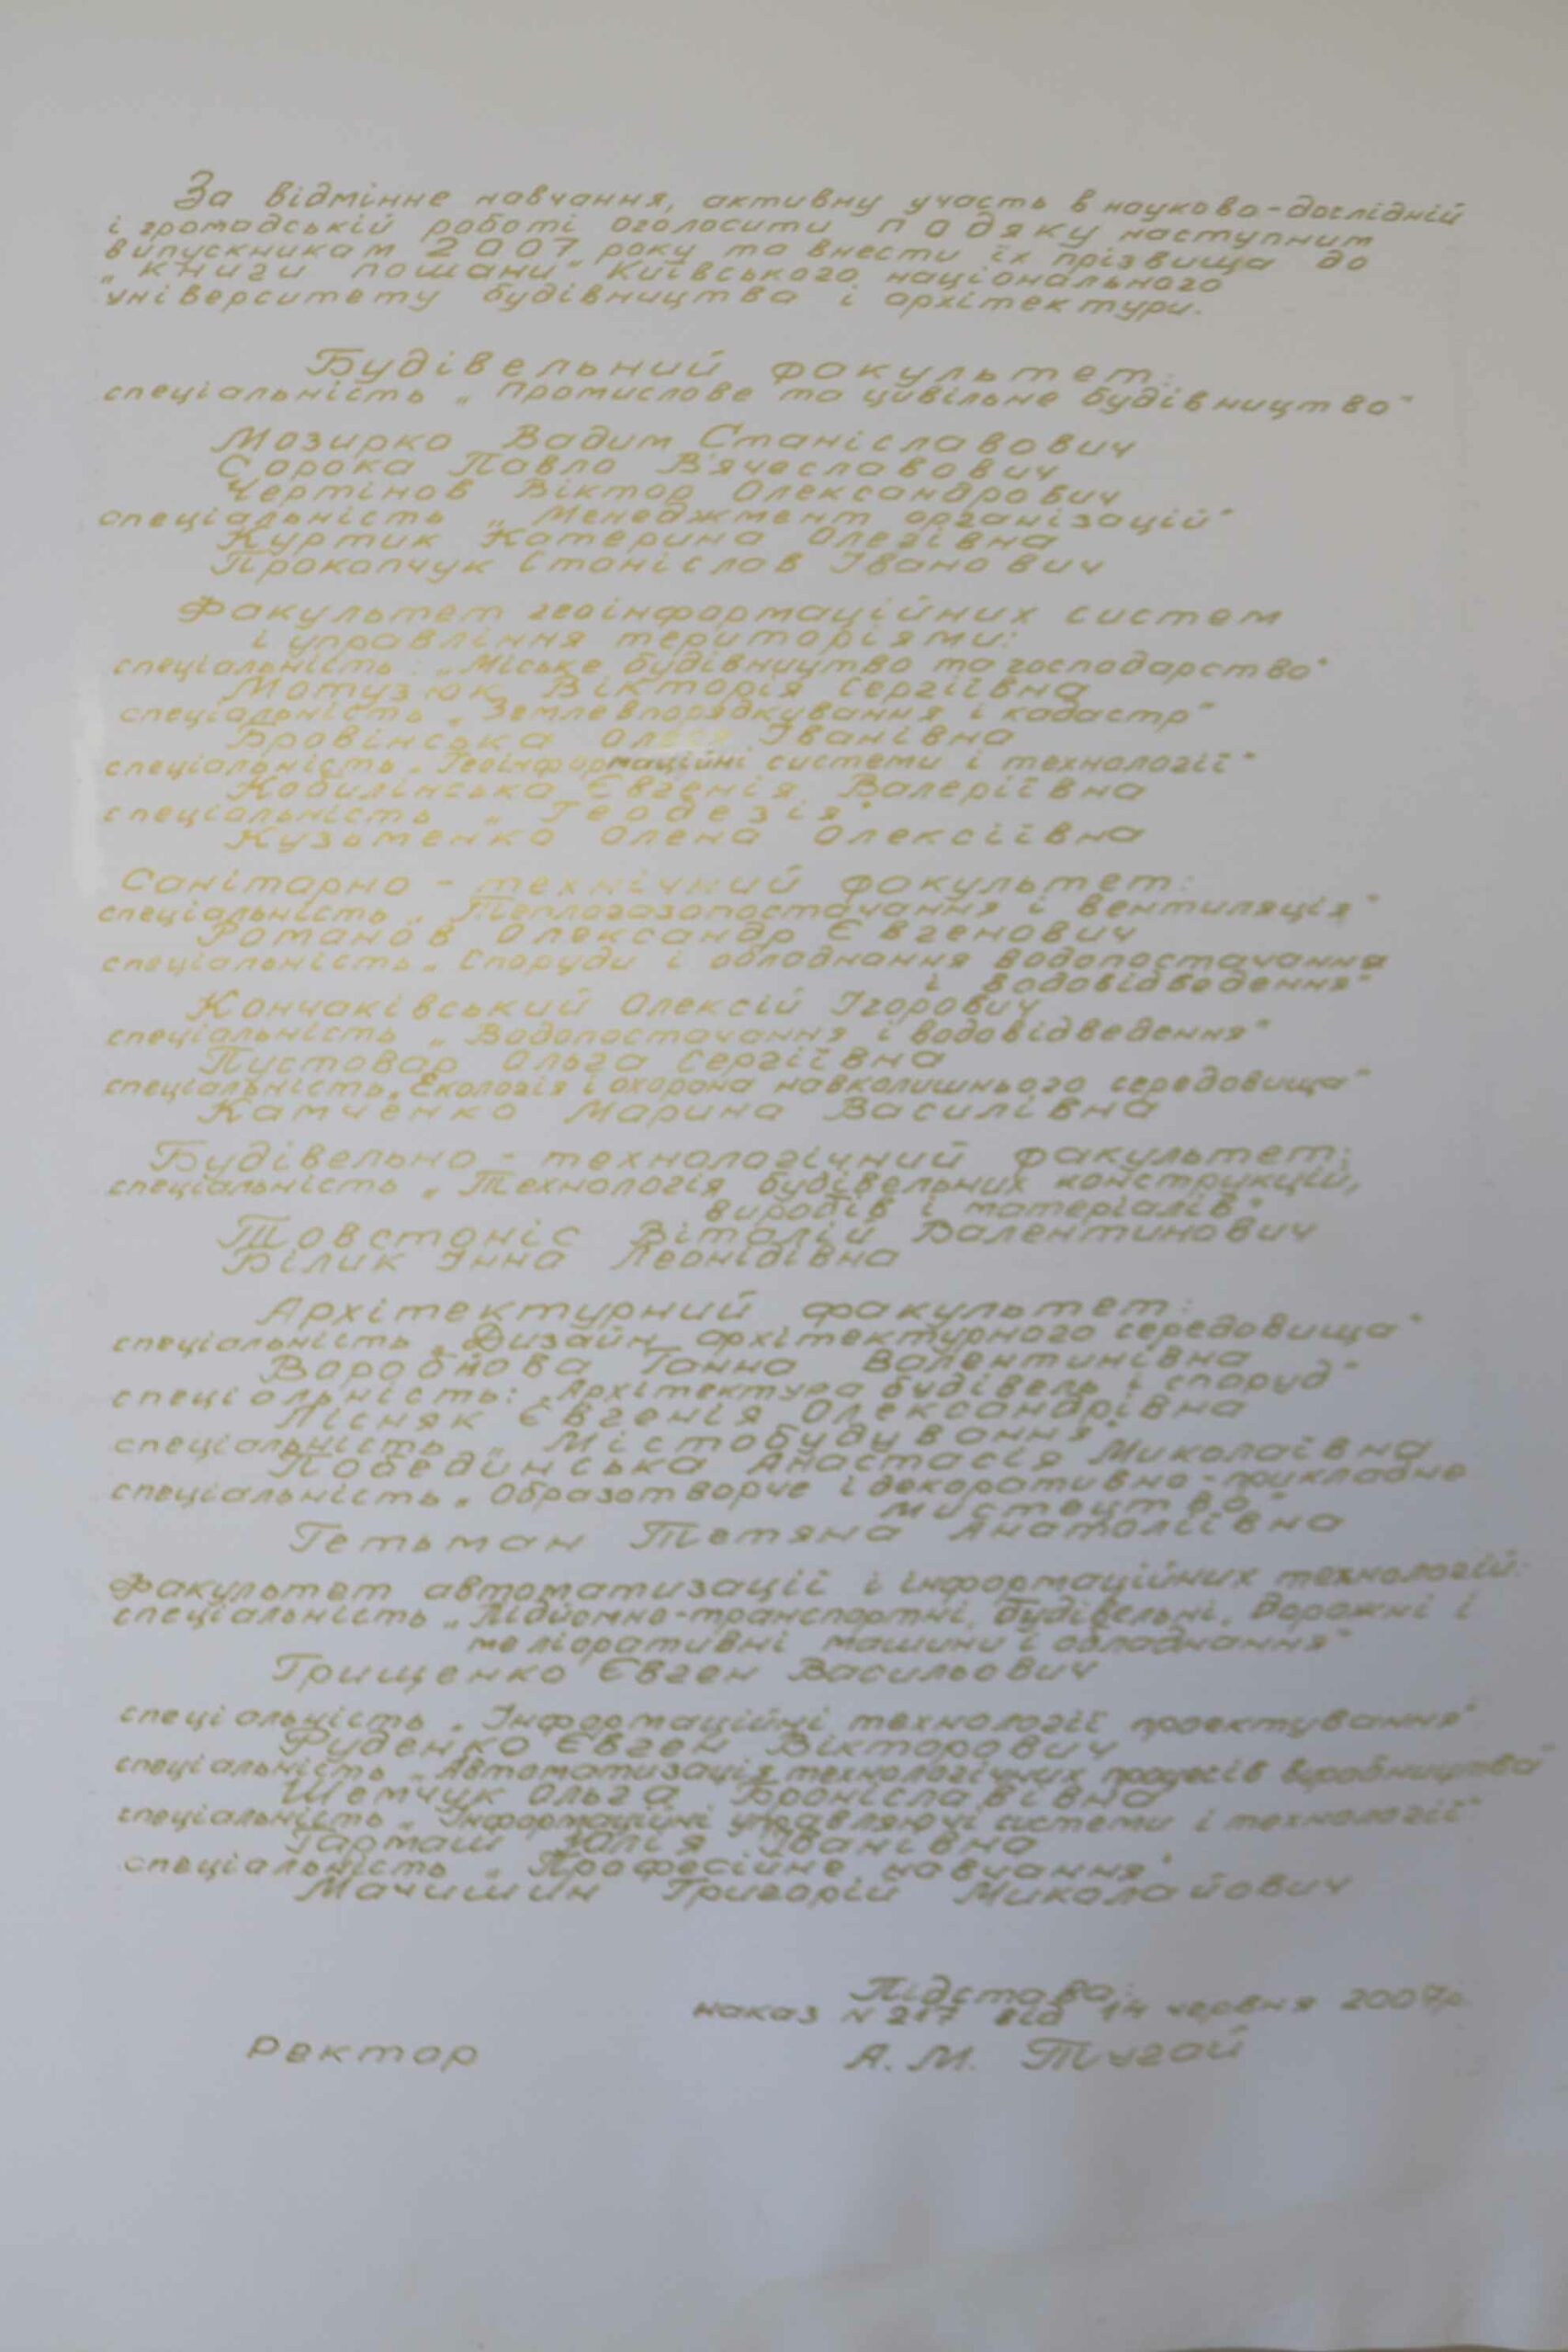 За відмінне навчання, активну участь в науково-дослідній
і громадській роботі оголосити подяку наступним
випускникам 2007 року та внести їх прізвища до
„книги пошани" Київського національного
університету будівництва і архітектури.
Будівельний факультет:
спеціальність „Промислове та цивільне будівництво"
Мозирко Вадим Станіславович
Сорока Павло В'ячеславович
Чертінов Віктор Олександрович
спеціальність „Менеджмент організацій"
Куртик Катерина Олегівна
Прокопчук Станіслав Іванович
Факультет геоінформаційних систем
і управління територіями:
спеціальність: „Міське будівництво та господарство"
Мотузюк Вікторія Сергіївна
спеціальність „Землевпорядкування і кадастр"
Бровінська Олеся Іванівна
спеціальність „Геоінформаційні системи і технології"
Кобилінська Євгенія Валеріївна
спеціальність „Геодезія"
Кузьменко Олена Олексіївна
Санітарно - технічний факультет:
спеціальність „Теплогазопостачання і вентиляція"
Романов Олександр Євгенович
спеціальність „Споруди і обладнання водопостачання
і водовідведення"
Кончаківський Олексій Ігорович
спеціальність „Водопостачання і водовідведення"
Пустовар Ольга Сергіївна
спеціальність „Екологія і охорона навколишнього середовища"
Катченко Марина Василівна
Будівельно - технологічний факультет:
спеціальність „Технологія будівельних конструкцій,
виробів і матеріалів"
Товстоніс Віталій Валентинович
Білик Інна Леонідівна
Архітектурний факультет:
спеціальність „Дизайн архітектурного середовища"
Воробйова Ганна Валентинівна
спеціальність: „Архітектура будівель і споруд"
Лісняк Євгенія Олександрівна
спеціальність „Містобудування"
Побединська Анастасія Миколаївна
спеціальність „Образотворче і декоративно-прикладне
мистецтво"
Гетьман Тетяна Анатоліївна
Факультет автоматизації і інформаційних технологій:
спеціальність „Підйомно-транспортні, будівельні, дорожні і
меліоративні машини і обладнання"
Грищенко Євген Васильович
спеціальність „Інформаційні технології проектування"
Руденко Євген Вікторович
спеціальність „Автоматизація технологічних процесів виробництва"
Шемчук Ольга Броніславівна
спеціальність „Інформаційні управляючі системи і технології"
Гармаш Юлія Іванівна
спеціальність „Професійне навчання"
Мачишин Григорій Миколайович
Підстава:
наказ N 217 від 14 червня 2007р.
Ректор А. М. Тугай